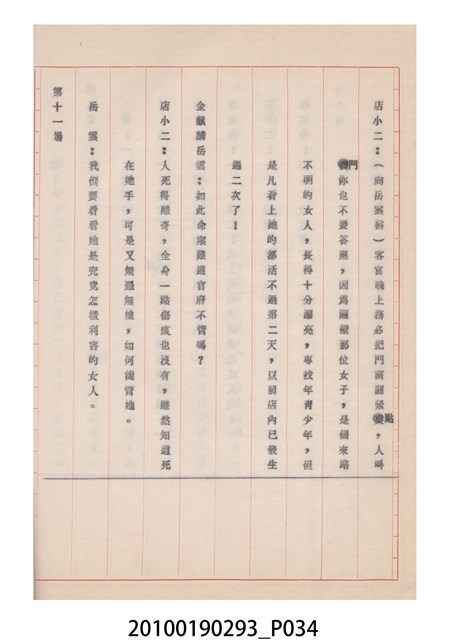 店小二：（向岳雲倍）客官晚上務必把門窗關緊點，人叫
門你也不要答應，因為隔壁那位女子，是個來路
不明的女人，長得十分漂亮，專找年青少年，但
是凡看上她的都活不過第二天，以前店內已發生
過二次了！
金麒麟岳雲：如此命案難道官府不管嗎？
店小二：人死得離奇，全身一點傷痕也沒有，雖然知道死
在她手，可是又無憑無據，如何能管她。
岳 雲：我倒要看看她是究竟怎樣利害的女人。
第十一場
20100190293_P034